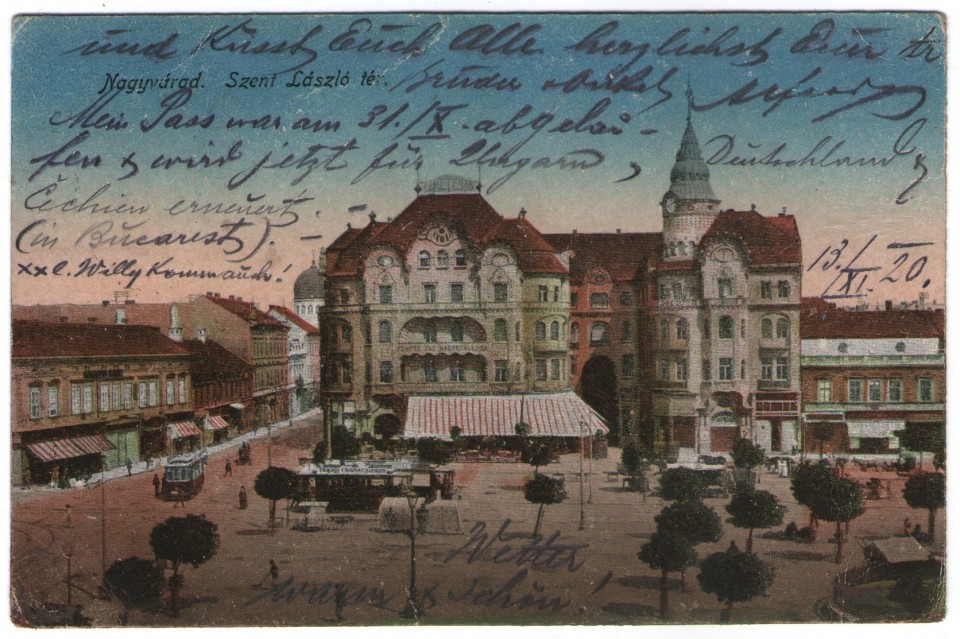 und Küsst Euch Alle herzlichst Euer tr
Nagyvárad. Szent László tér.
Bruder Onkel
Mein Pass war am 31./X. abgelau-
fen & wird jetzt für Ungarn, Deutschland &
Čechien erneuert. -
(in Bucarest). -
13./XI. 20.
xxl. Willy
Wetter
warm & schön!